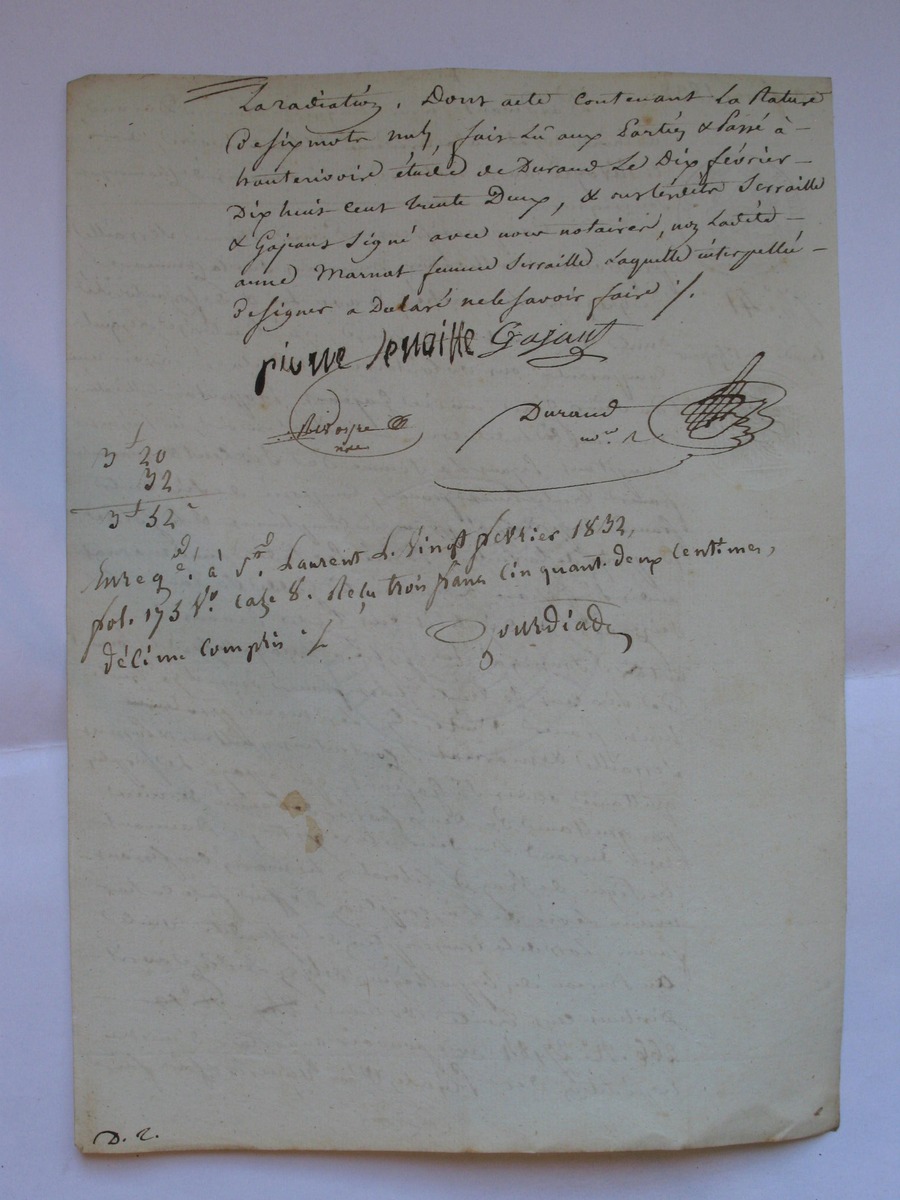 La radiation. Dont acte contenant La Rature
De six mots nuls, fait Lû aux Parties & Passé à
hauterivoire étude de Durand Le Dix février
Dix huit cent trente Deux, & ont lesdits Serraille
& Gajant signé avec nous notaires, non Ladite
anne Marnat femme Serraille Laquelle interpellée
De signer a Declaré ne le savoir faire ⁒.
pierre Gajant
Durand
3f 20
32
3f 52c
Enreg. à St. Laurent L. Vingt février 1832,
fol. 175 Vo. Case 8. Reçu trois francs Cinquant deux Centimes,
décime Compris ⁒
D. 2.